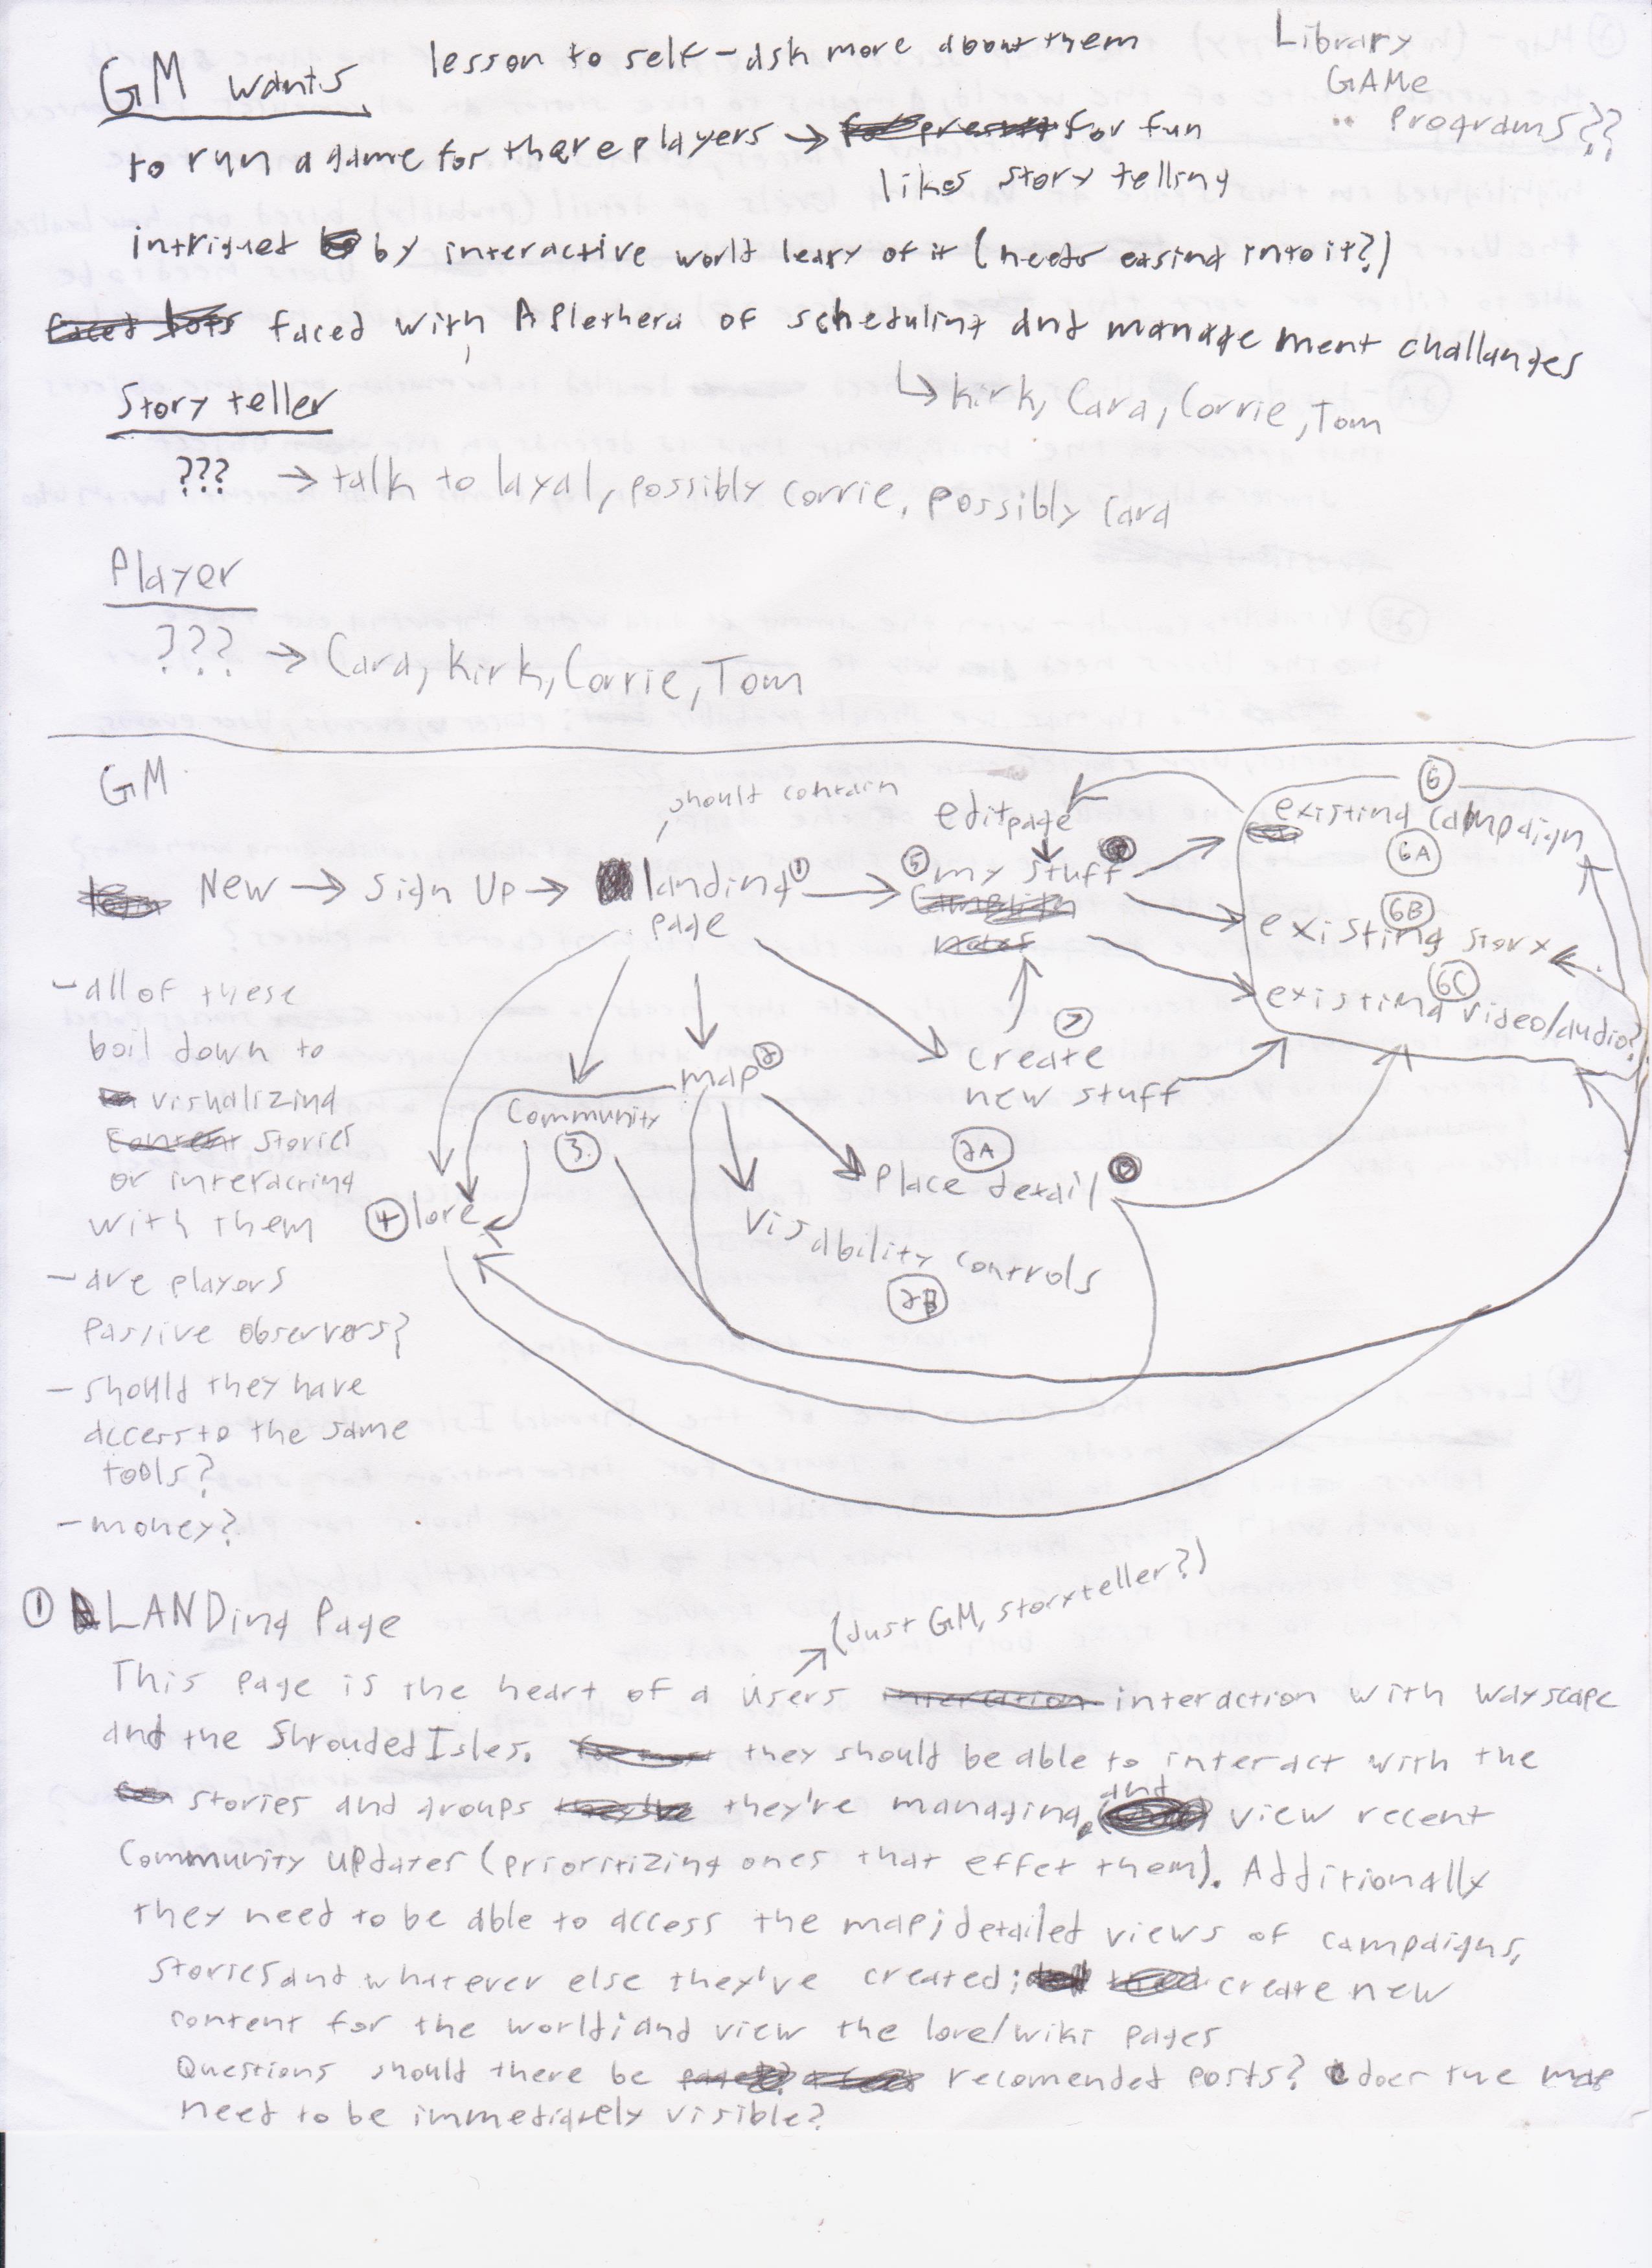 GM wants
lesson to self-ask more about them
Library
GAMe
" Programs??
to run a game for there players → for fun
likes story telling
intrigued by interactive world leary of it (needs easing into it?)
faced with A Plethera of scheduling and manage ment challanges
↳ Kirk, Cara, Corrie, Tom
Story teller
??? → talk to layal, possibly corrie, possibly Cara
Player
??? → Cara, Kirk, Corrie, Tom
GM
should contain
edit page
6
existing campaign
6A
New → Sign Up → landing 1 → 5 my stuff
page
6B
existing story
6C
existing video/audio?
7
create
new stuff
map 2
Community
3.
2A
Place detail
4 lore
Visability controls
2B
- all of these
boil down to
visualizing
stories
or interacting
with them
- are players
Passive observors?
- should they have
access to the same
tools?
- money?
1 LANDing Page
(Just GM, storyteller?)
This page is the heart of a users interaction with Wayscape
and the Shrouded Isles. they should be able to interact with the
stories and groups they're managing, and view recent
Community updates (prioritizing ones that effet them). Additionally
they need to be able to access the map; detailed views of campaigns,
stories and whatever else they've created; create new
content for the world; and view the lore/wiki pages
Questions should there be recomended posts? does the map
need to be immediately visible?